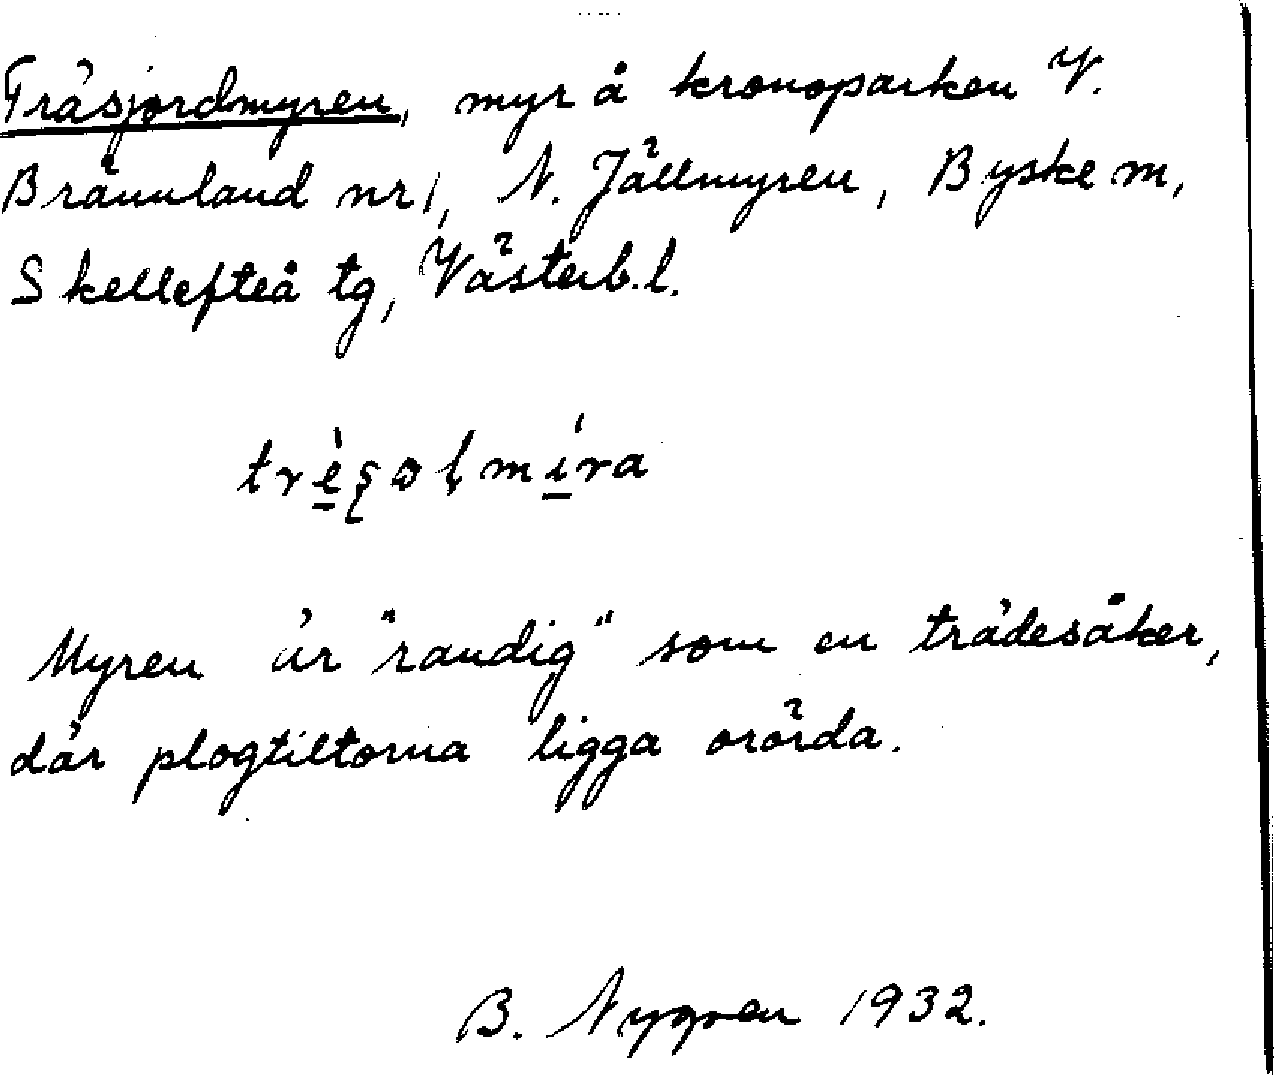 Träsjordmyren, myr å kronoparken V.
Brännland nr 1, N. Jällmyren, Byske m,
Skellefteå tg, Västerb. l.
Myren är "randig" som en trädesåker,
där plogtiltorna ligga orörda.
B. Nygren 1932.